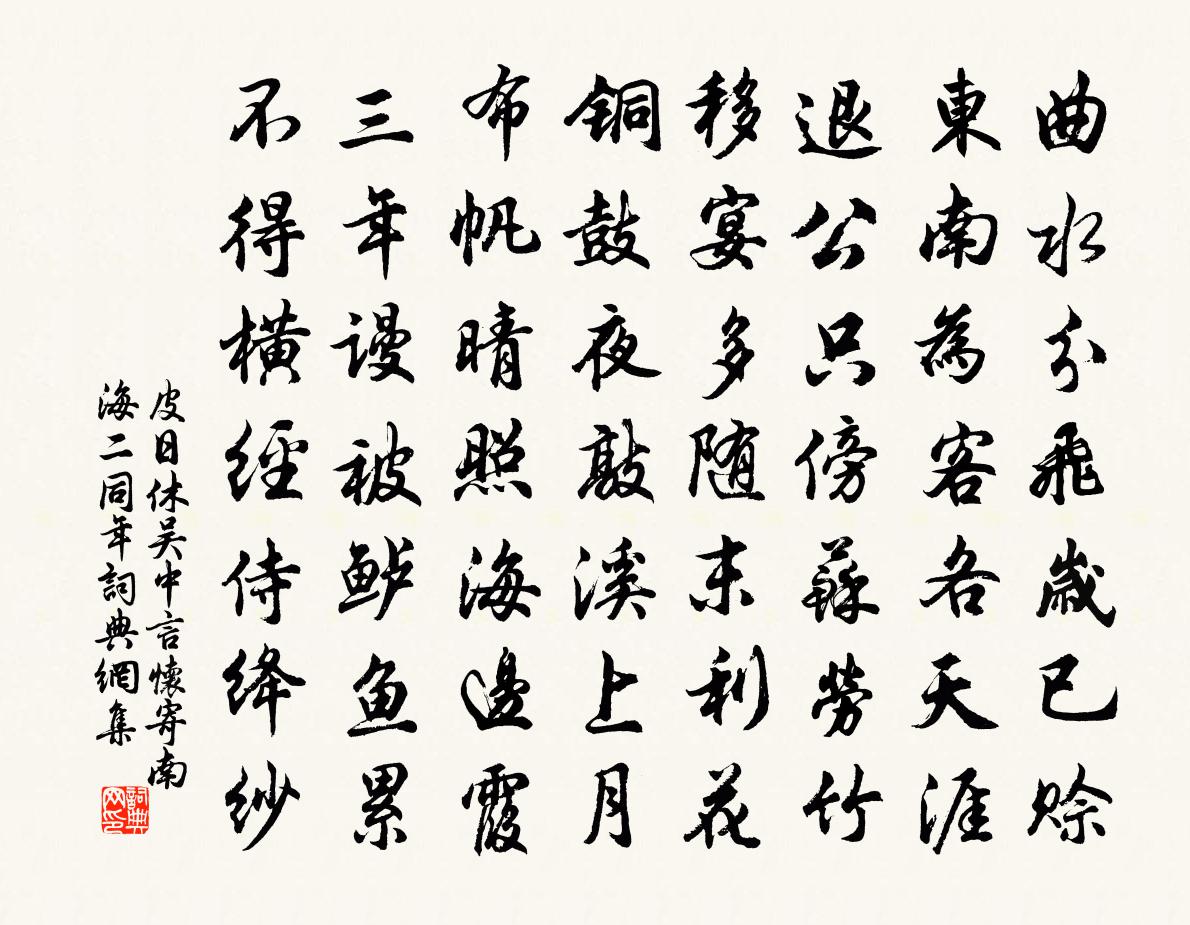 曲水分飛歲已賒
東南為客各天涯
退公只傍蘇勞竹
移宴多随末利花
銅鼓夜敲溪上月
布帆晴照海邊霞
三年謾被鲈鱼累
不得橫經侍絳紗
皮日休吴中言懷寄南
海二同年詞典網集
詞典
网印